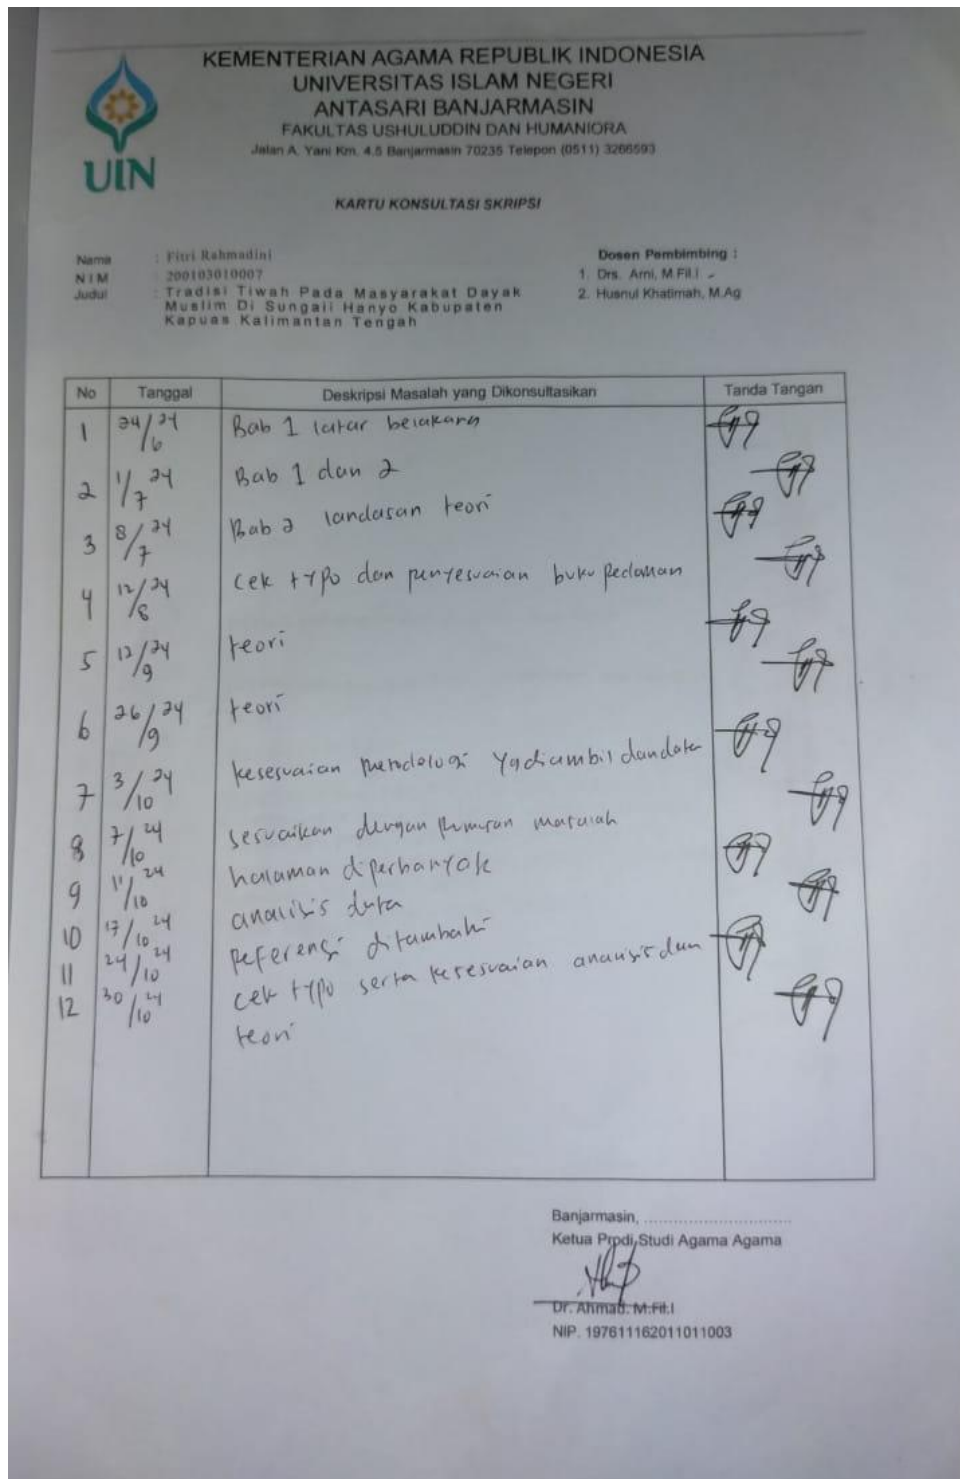 KEMENTERIAN AGAMA REPUBLIK INDONESIA
UNIVERSITAS ISLAM NEGERI
ANTASARI BANJARMASIN
FAKULTAS USHULUDDIN DAN HUMANIORA
Jalan A. Yani Km. 4.5 Banjarmasin 70235 Telepon (0511) 3266593
UIN
KARTU KONSULTASI SKRIPSI
Nama : Fitri Rahmadini
NIM : 200103010007
Judul : Tradisi Tiwah Pada Masyarakat Dayak
Muslim Di Sungaii Hanyo Kabupaten
Kapuas Kalimantan Tengah
Dosen Pembimbing :
1. Drs. Arni, M.Fil.I
2. Husnul Khatimah, M.Ag
No Tanggal Deskripsi Masalah yang Dikonsultasikan Tanda Tangan
1 24/6 24 Bab 1 latar belakang
2 1/7 24 Bab 1 dan 2
3 8/7 24 Bab 2 landasan teori
4 12/8 24 cek typo dan penyesuaian buku pedoman
5 12/9 24 teori
6 26/9 24 teori
7 3/10 24 kesesuaian metodologi yg diambil dan data
8 7/10 24 sesuaikan dengan rumusan masalah
9 11/10 24 halaman diperbanyak
10 17/10 24 analisis data
11 24/10 24 Referensi ditambahi
12 30/10 24 cek typo serta kesesuaian analisis dan
teori
Banjarmasin, ..............................
Ketua Prodi Studi Agama Agama
Dr. Ahmad. M.Fil.I
NIP. 197611162011011003